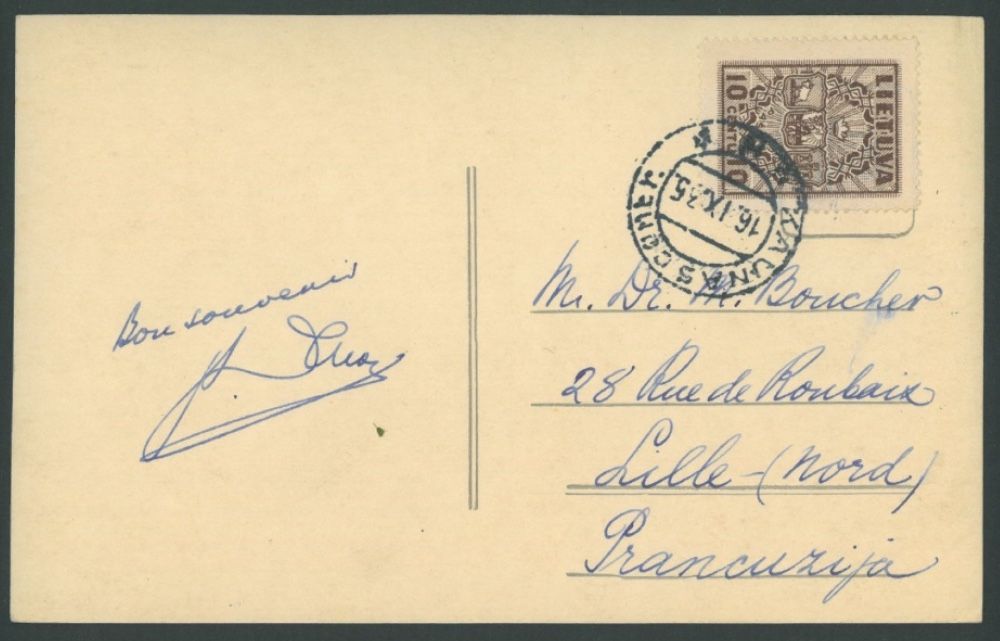 LIETUVA
10 CENT. 10
KAUNAS
16.IX.35.
Bon souvenir
M. Dr. M. Boucher
28 Rue de Roubaix
Lille-(Nord)
Prancuzija